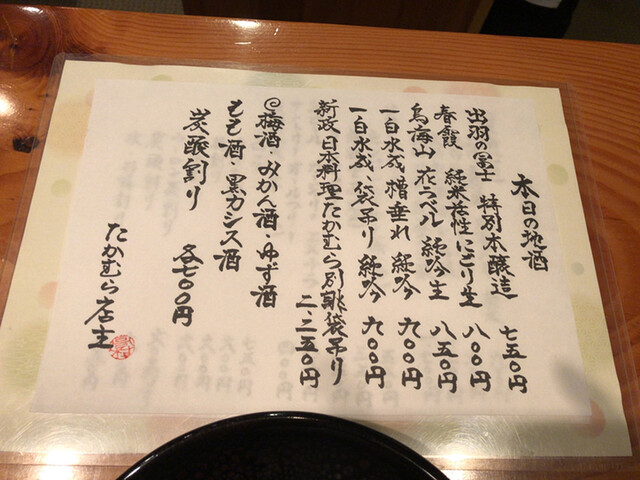 本日の地酒
出羽の冨士 特別本醸造 七五〇円
春霞 純米活性にごり生 八〇〇円
鳥海山 花ラベル 純吟生 八五〇円
一白水成 槽垂れ 純吟 九〇〇円
一白水成、袋吊り 純吟 九〇〇円
新政 日本料理たかむら別誂袋吊り
二、二五〇円
梅酒・みかん酒・ゆず酒
もも酒・黒カシス酒
炭酸割り 各七〇〇円
たかむら店主